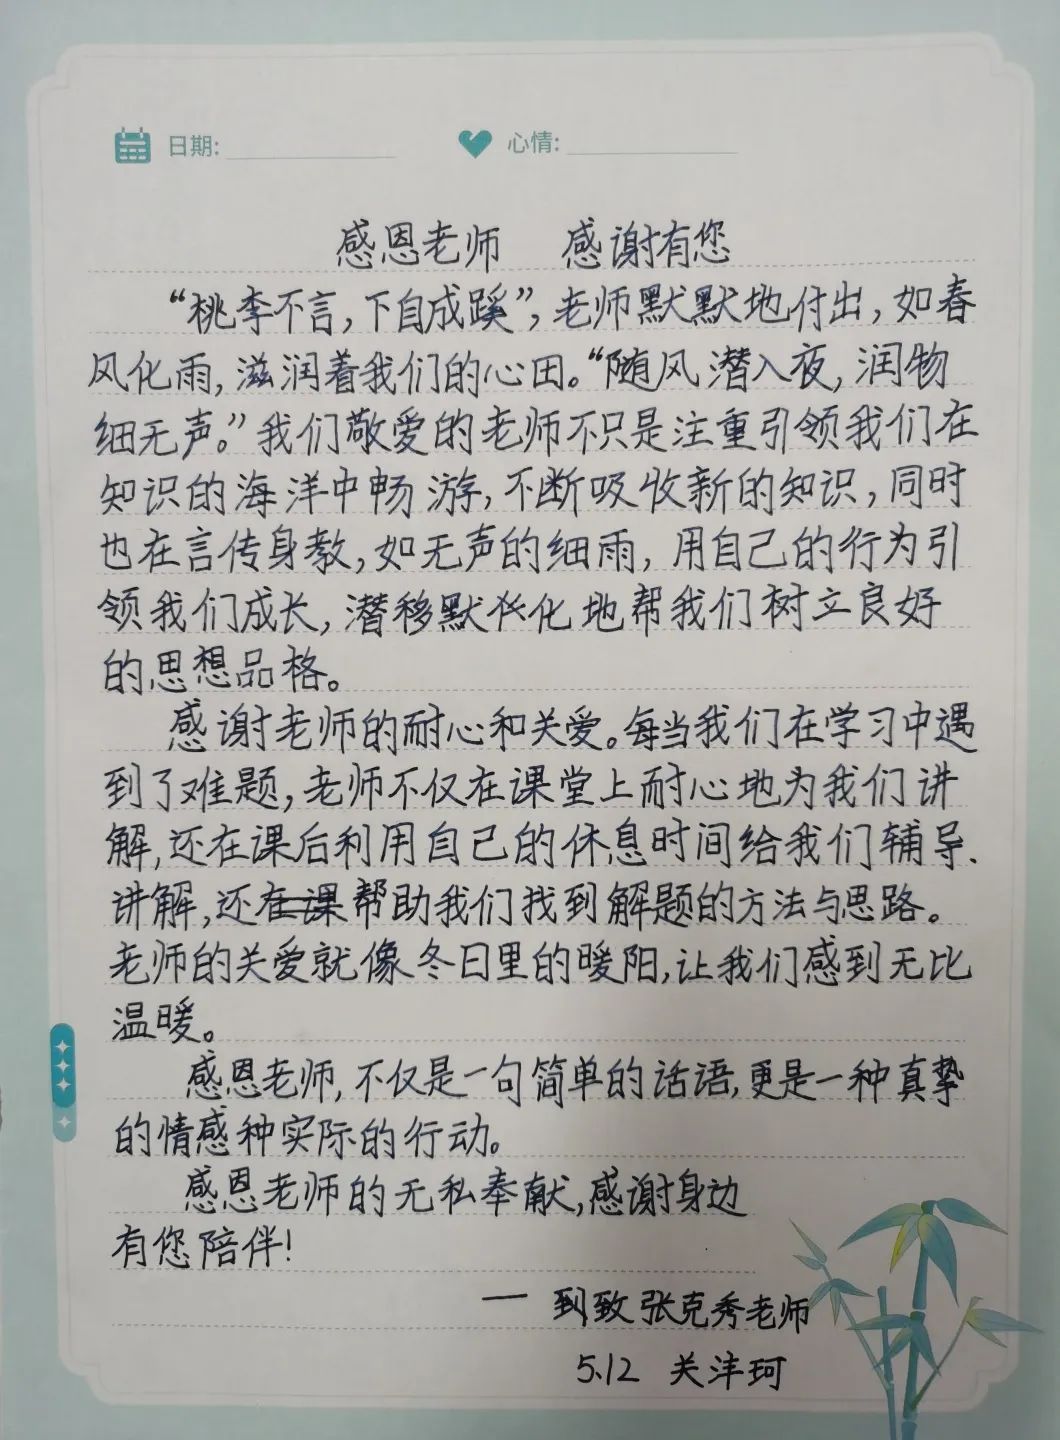 日期: 心情:
感恩老师 感谢有您
“桃李不言，下自成蹊”，老师默默地付出，如春
风化雨，滋润着我们的心田。“随风潜入夜，润物
细无声。”我们敬爱的老师不只是注重引领我们在
知识的海洋中畅游，不断吸收新的知识，同时
也在言传身教，如无声的细雨，用自己的行为引
领我们成长，潜移默化地帮我们树立良好
的思想品格。
感谢老师的耐心和关爱。每当我们在学习中遇
到了难题，老师不仅在课堂上耐心地为我们讲
解，还在课后利用自己的休息时间给我们辅导.
讲解，还在课帮助我们找到解题的方法与思路。
老师的关爱就像冬日里的暖阳，让我们感到无比
温暖。
感恩老师，不仅是一句简单的话语，更是一种真挚
的情感种实际的行动。
感恩老师的无私奉献，感谢身边
有您陪伴！
— 致张克秀老师
5.12 关沣珂